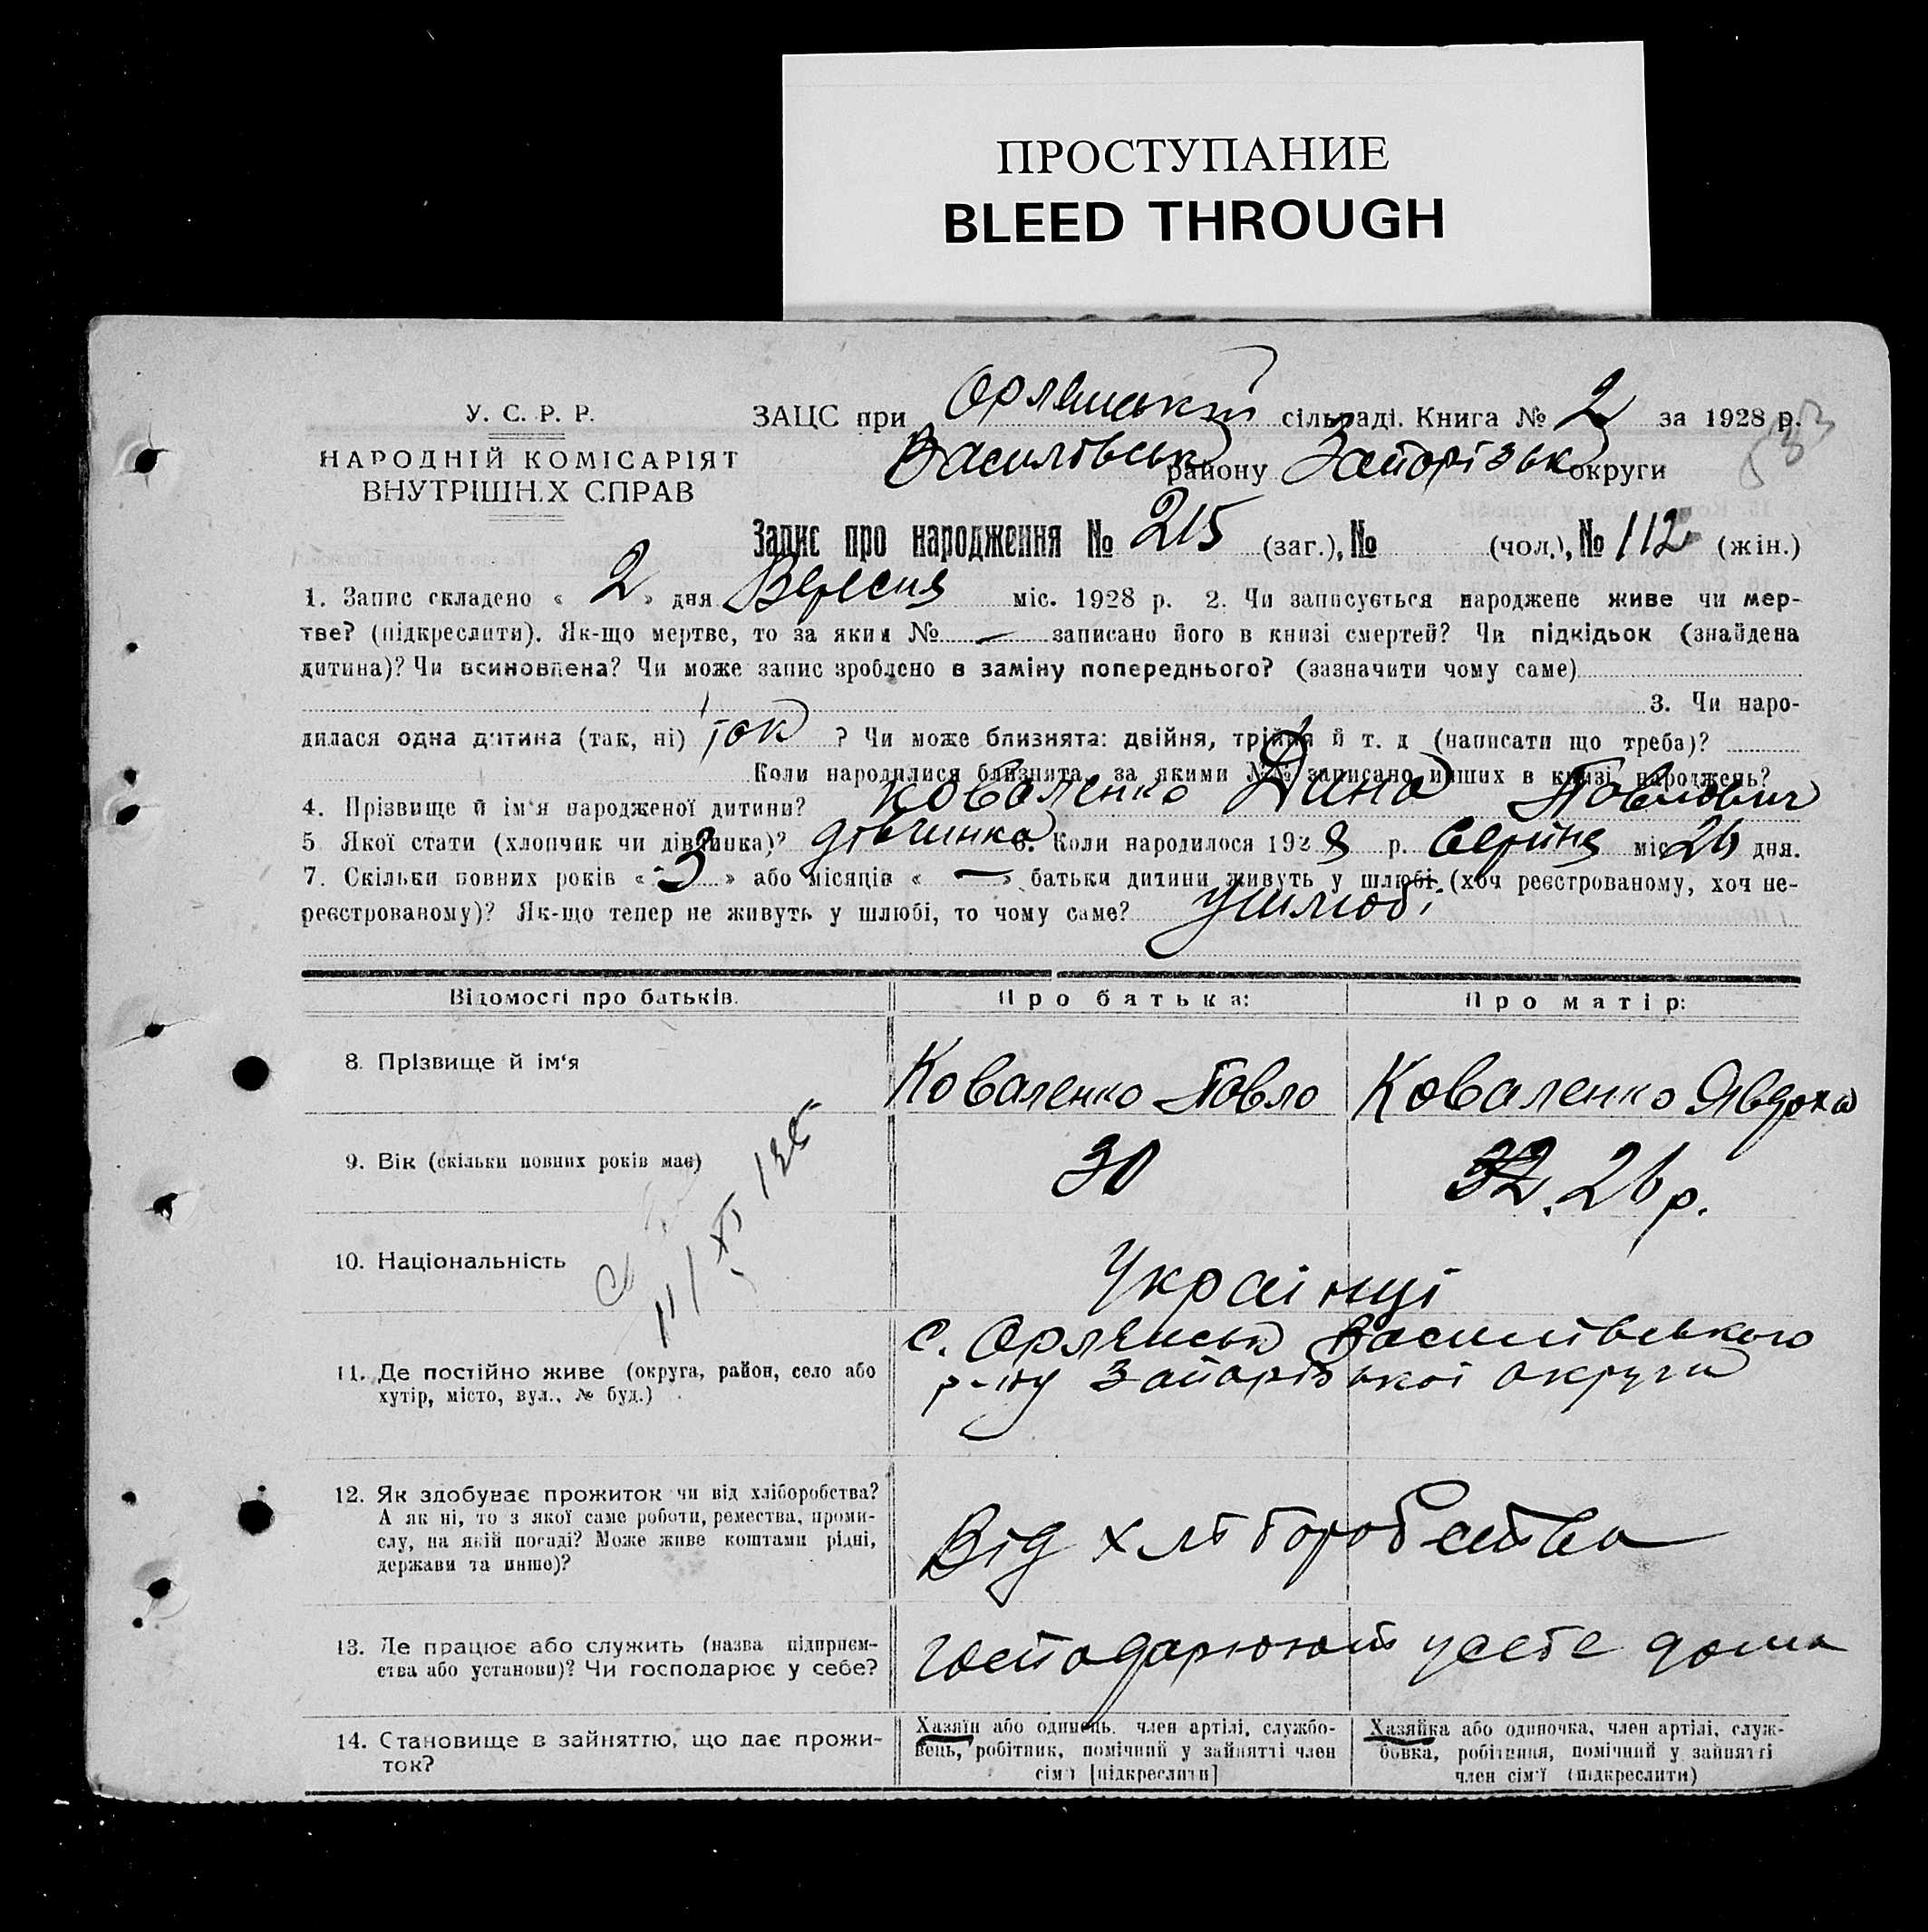 ПРОСТУПАНИЕ
BLEED THROUGH
У. С. Р. Р.
НАРОДНІЙ КОМІСАРІЯТ
ВНУТРІШН.Х СПРАВ
ЗАЦС при Орлянській сільраді. Книга № 2 за 1928 р.
Василівськ району Запорізьк округи
Запис про народження № 215 (заг.), № (чол.), № 112 (жін.)
1. Запис складено « 2 » дня Вересня міс. 1928 р. 2. Чи записується народжене живе чи мер-
тве? (підкреслити). Як-що мертве, то за яким № — записано його в книзі смертей? Чи підкідьок (знайдена
дитина)? Чи всиновлена? Чи може запис зроблено в заміну попереднього? (зазначити чому саме)
3. Чи наро-
дилася одна дитина (так, ні) так ? Чи може близнята: двійня, трійня й т. д (написати що треба)?
Коли народилися близнята, за якими №№ записано инших в книзі народжень?
4. Прізвище й ім'я народженої дитини? Коваленко Дина Павлович
5 Якої стати (хлопчик чи дівчинка)? дівчинка 6. Коли народилося 1928 р. Серпня міс 26 дня.
7. Скільки повних років « 3 » або місяців « — » батьки дитини живуть у шлюбі (хоч реєстрованому, хоч не-
реєстрованому)? Як-що тепер не живуть у шлюбі, то чому саме? у шлюбі
Відомості про батьків.
Про батька:
Про матір:
8. Прізвище й ім'я
Коваленко Павло
Коваленко Явдоха
9. Вік (скільки повних років має)
30
32. 26 р.
10. Національність
Украінці
11. Де постійно живе (округа, район, село або
хутір, місто, вул., № буд.)
с. Орлянськ Василівського
р-ну Запорізької округи
12. Як здобуває прожиток чи від хліборобства?
А як ні, то з якої саме роботи, ремества, проми-
слу, на якій посаді? Може живе коштами рідні,
держави та инше)?
Від хліборобства
13. Де працює або служить (назва підприєм-
ства або установи)? Чи господарює у себе?
господарюють у себе дома
14. Становище в зайняттю, що дає прожи-
ток?
Хазяїн або одинець. член артілі, службо-
вець, робітник, помічний у зайнятті член
сім'ї [підкреслити]
Хазяйка або одиночка, член артілі, служ-
бовка, робітниця, помічний у зайнятті
член сім'ї (підкреслити)